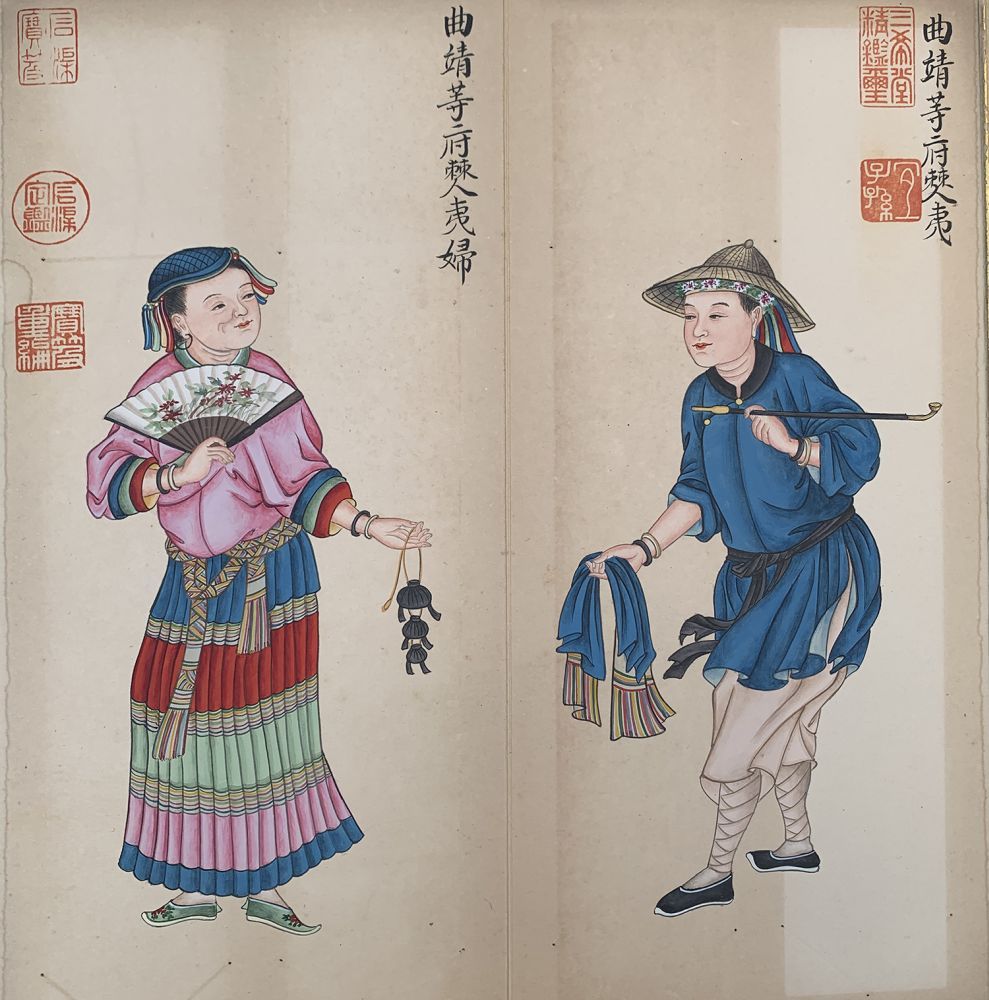 曲靖等府僰夷
三希堂精鑑璽
宜子孫
曲靖等府僰夷婦
石渠寶笈
石渠定鑑
寶笈重編